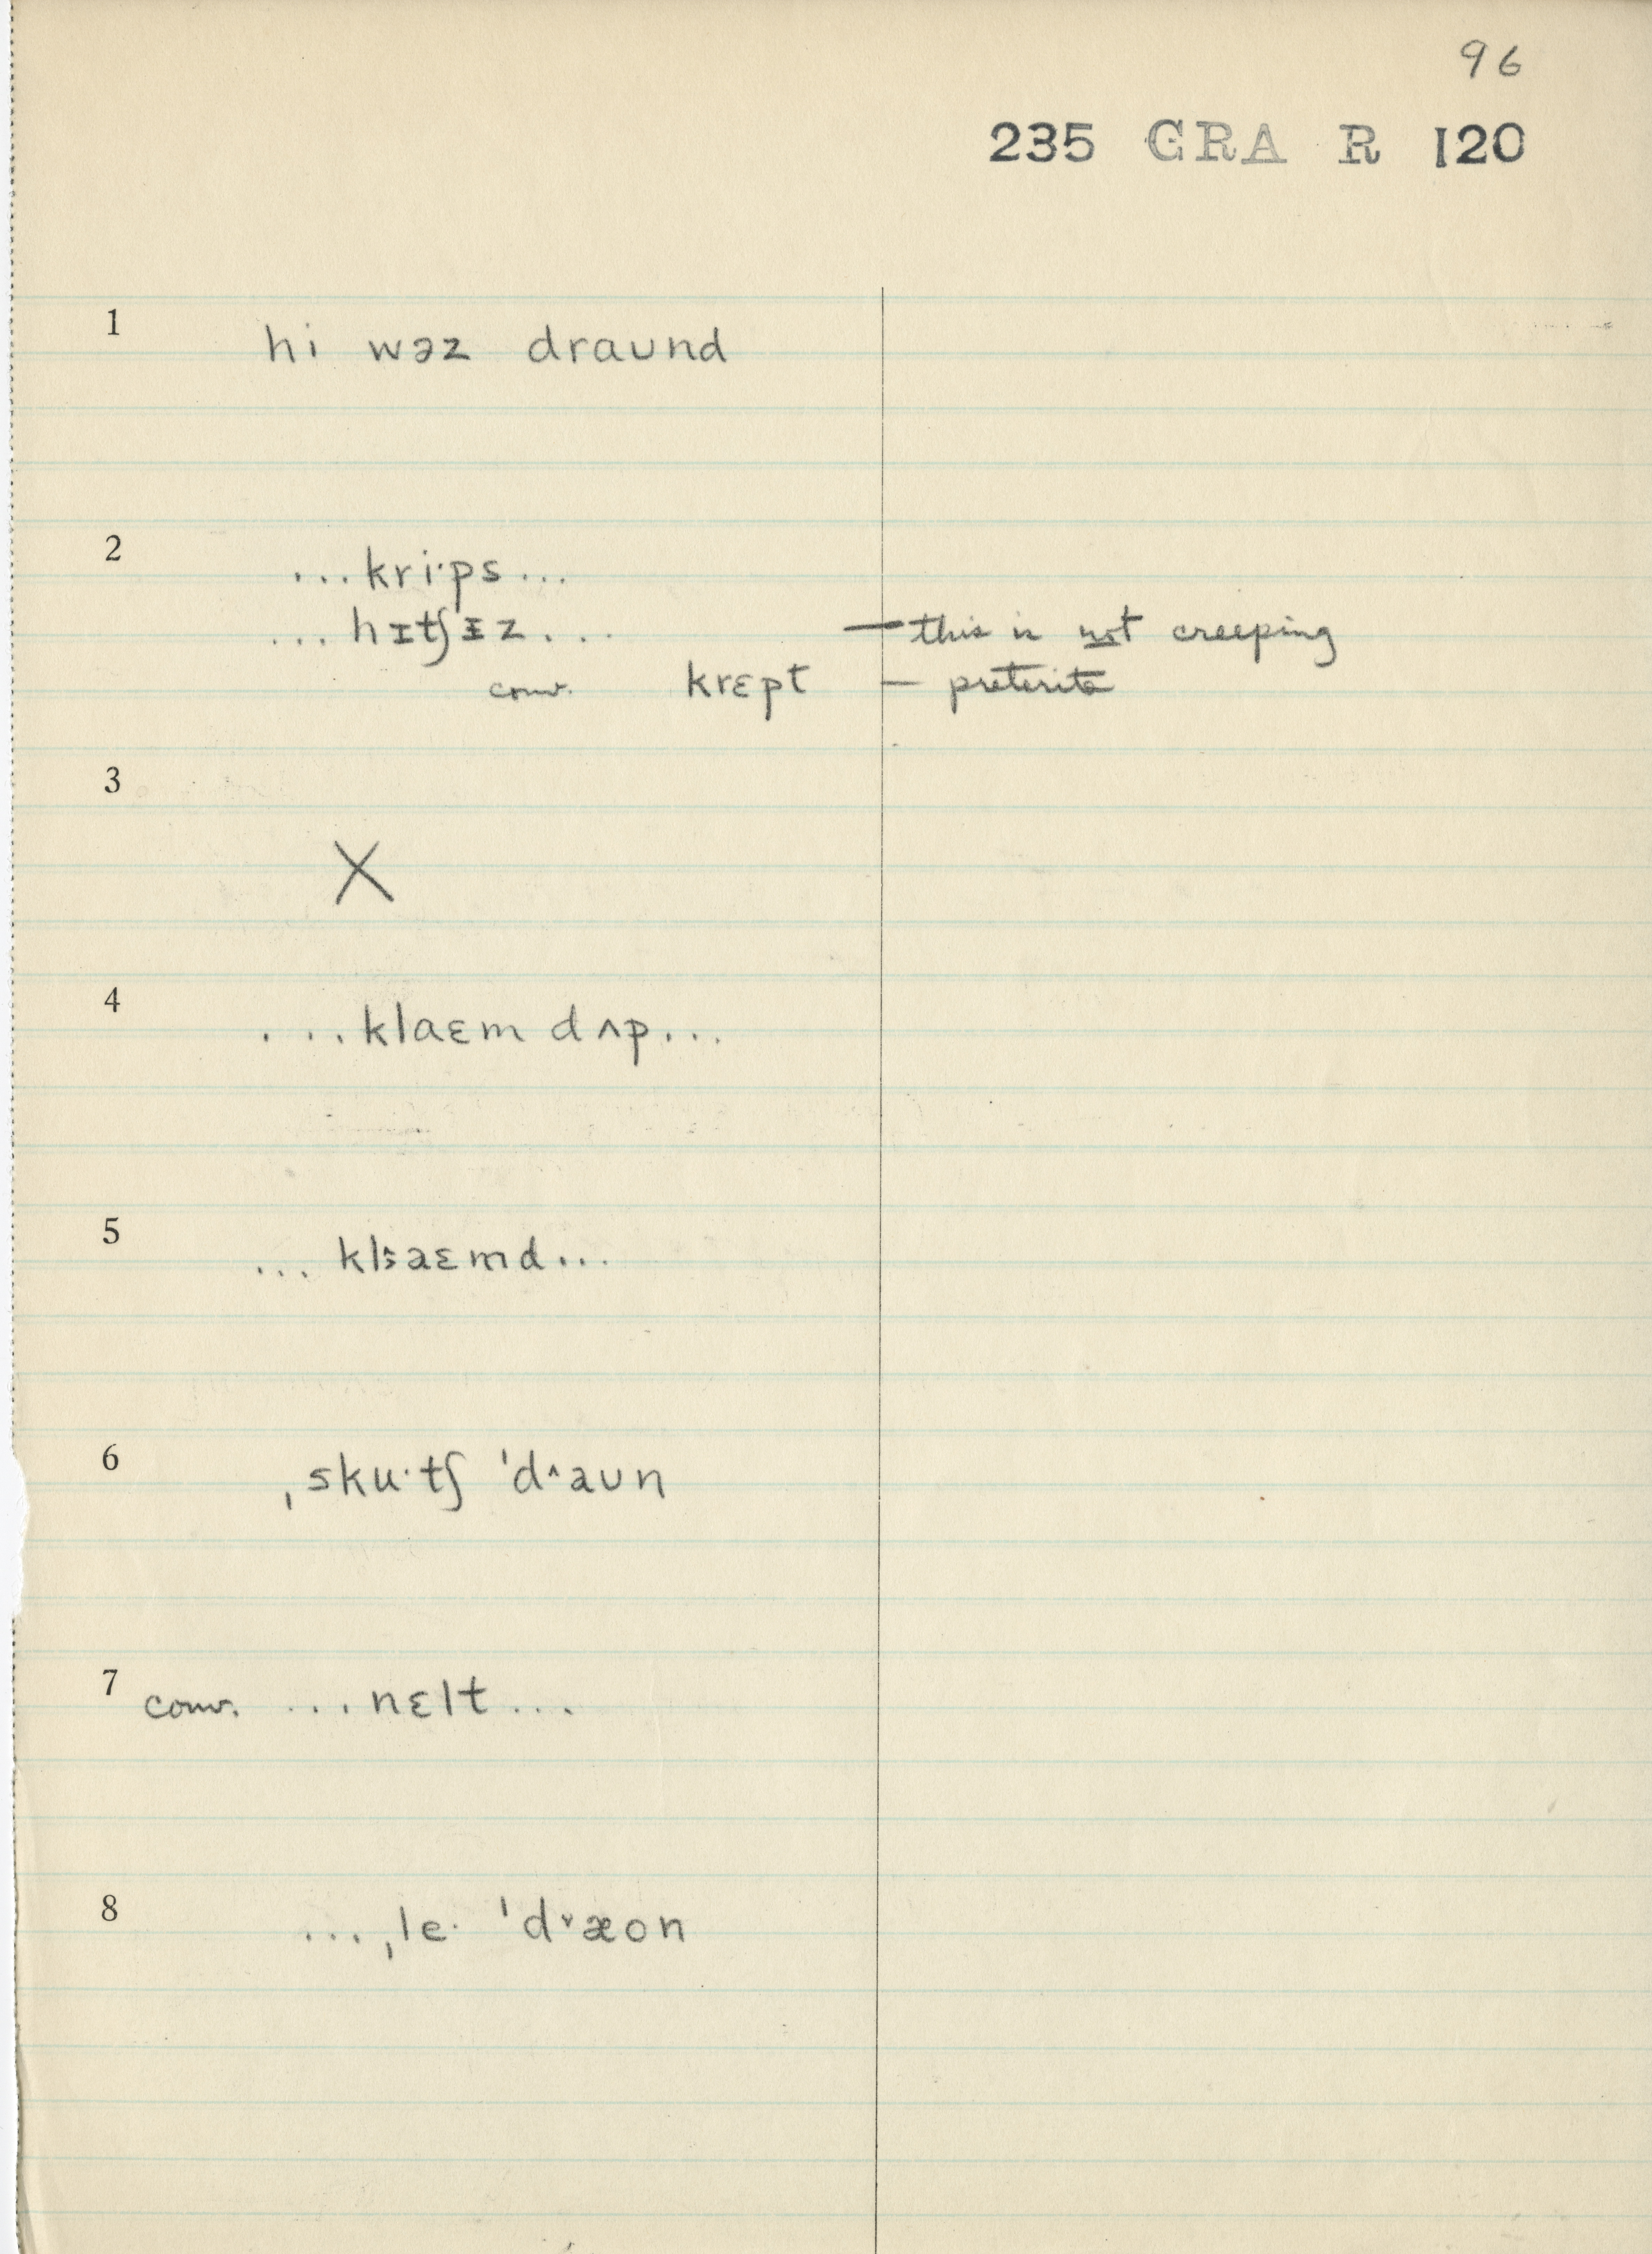 96
235 GRA R 120
1 hi wəz draʊnd
2 ...kri·ps...
...hɪtʃɪz... — this is not creeping
conv. krɛpt — preterite
3
X
4 ...klaɛm dʌp...
5 ... klaɛmd...
6 ˌsku·tʃ ˈd˄aʊn
7 conv. ...nɛlt...
8 ...ˌle· ˈd˅æon